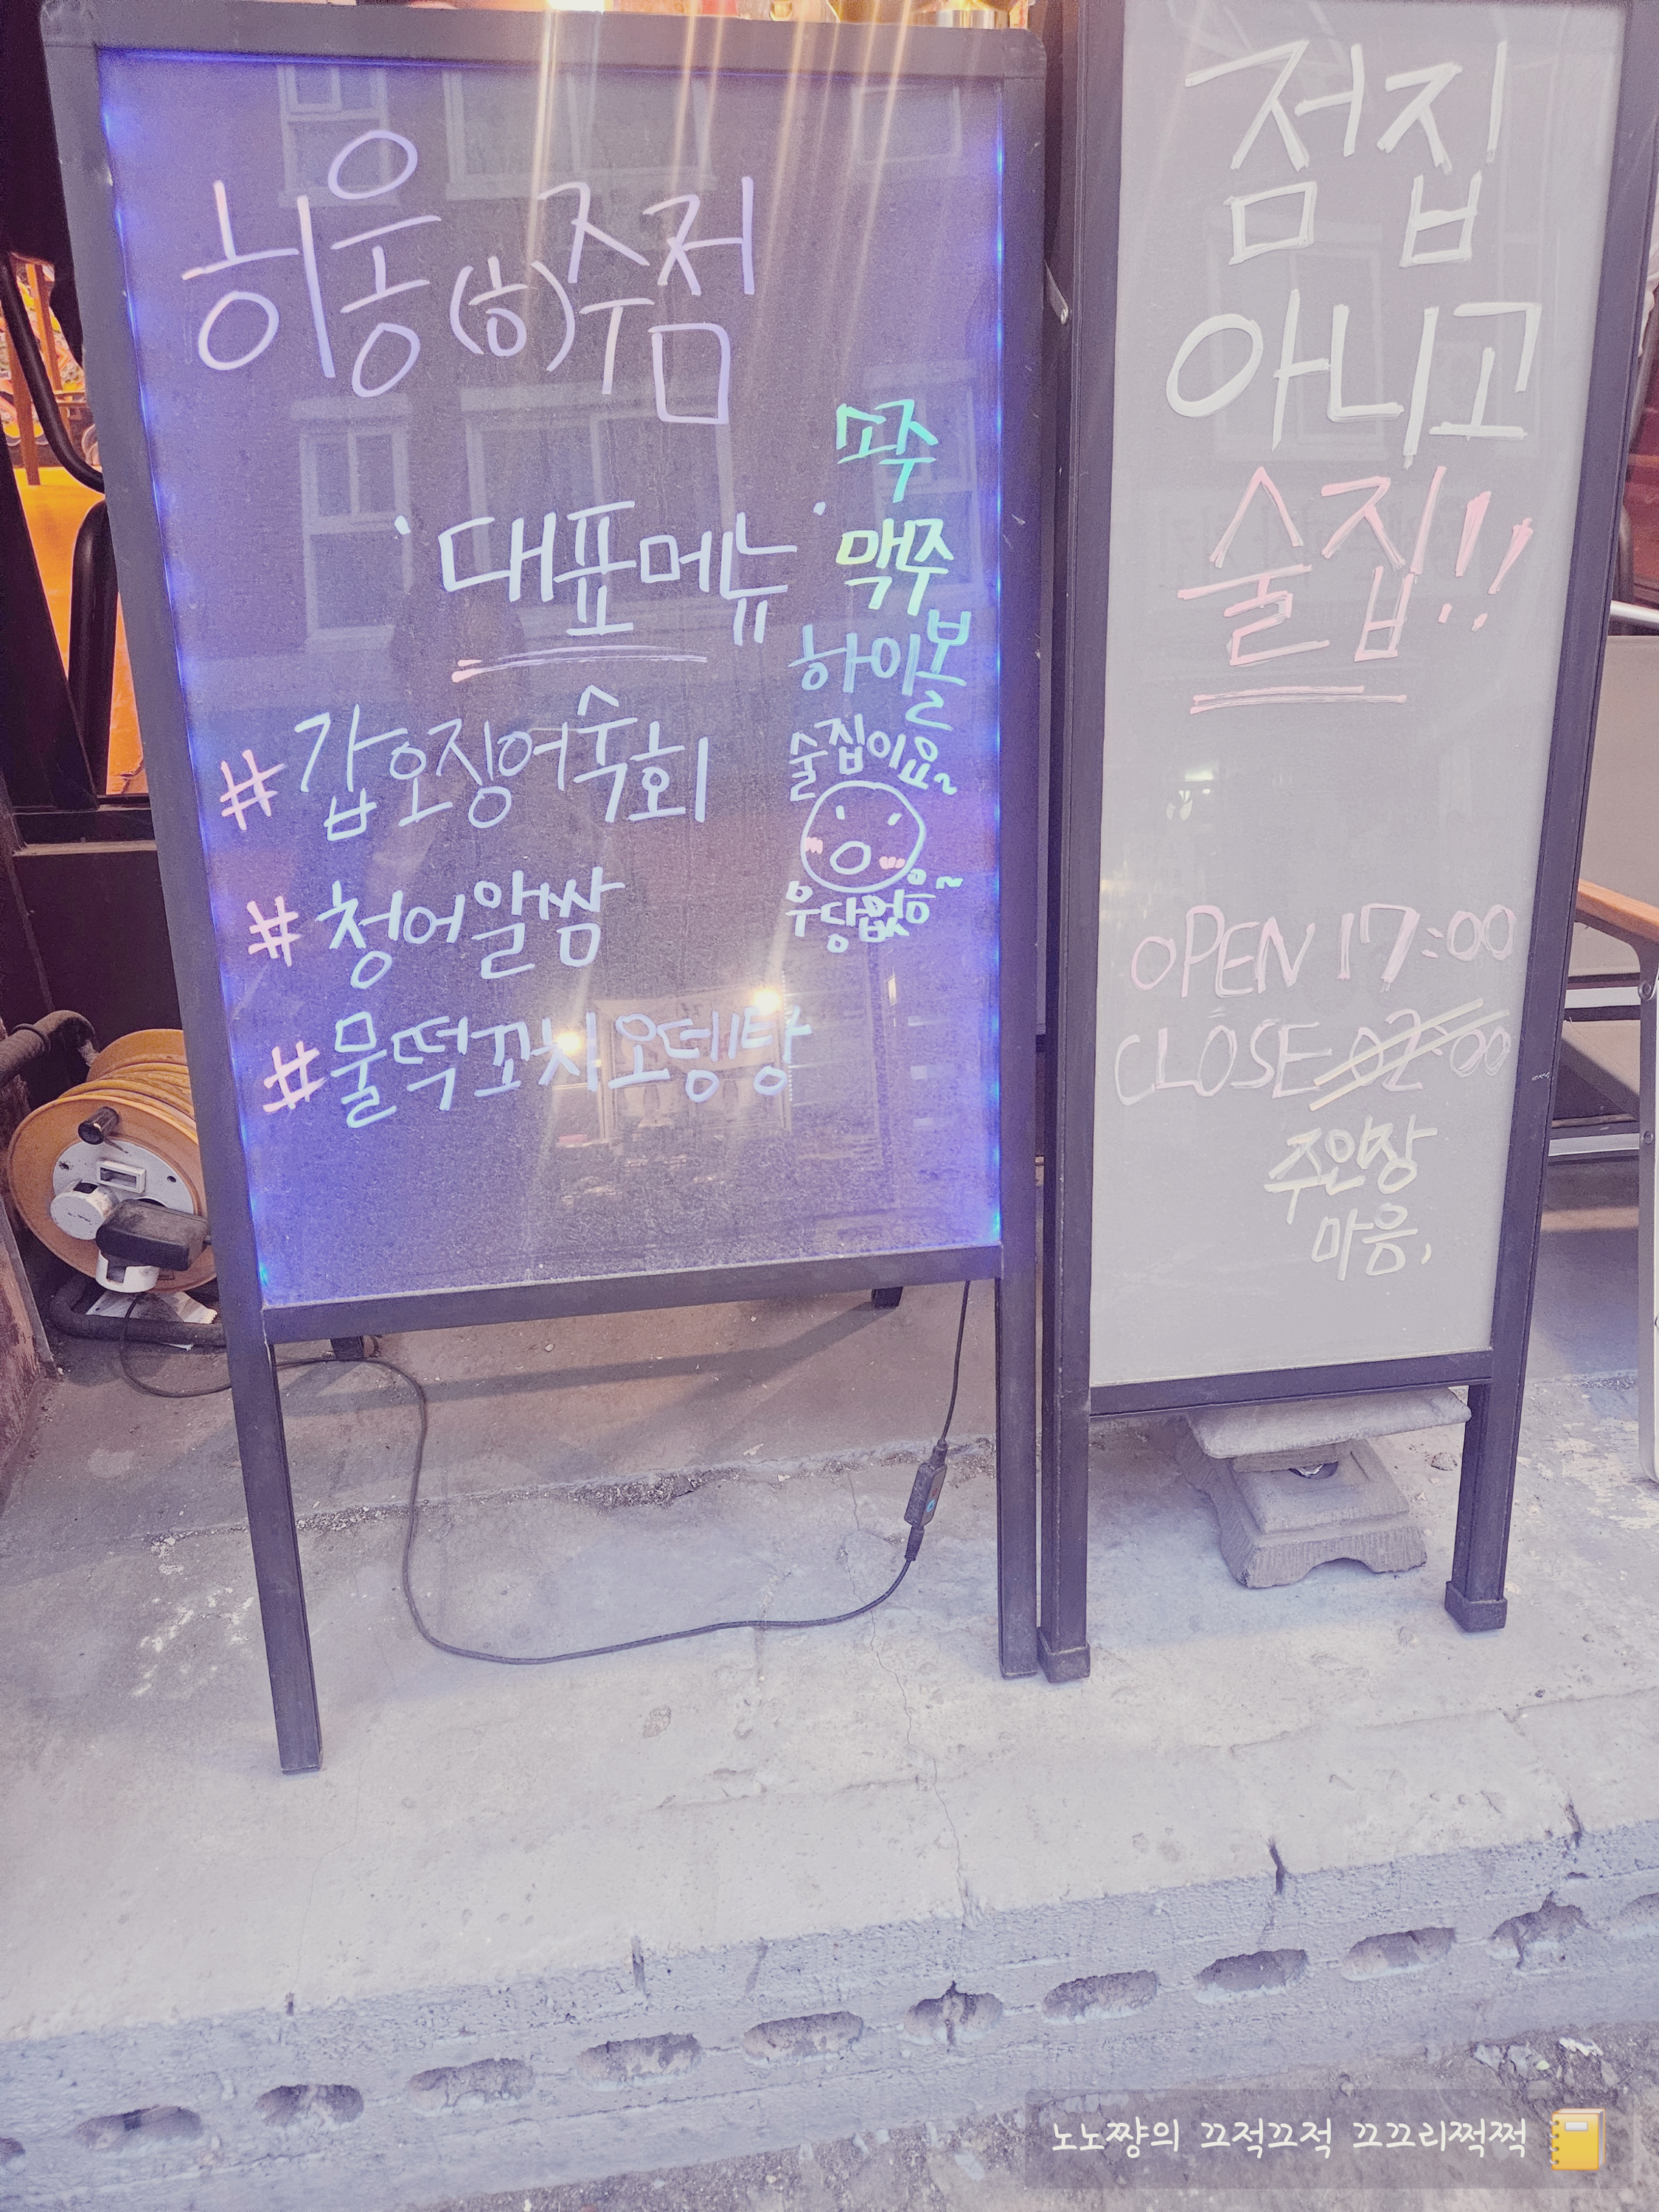 히읗(ㅎ)주점
·대표메뉴·
#갑오징어숙회
#청어알쌈
#물떡꼬치오뎅탕
소주
맥주
하이볼
술집이요~
무당없음~
점집
아니고
술집!!
OPEN 17:00
CLOSE 02:00
주인장
마음,
노노쨩의 끄적끄적 끄끄리쩍쩍